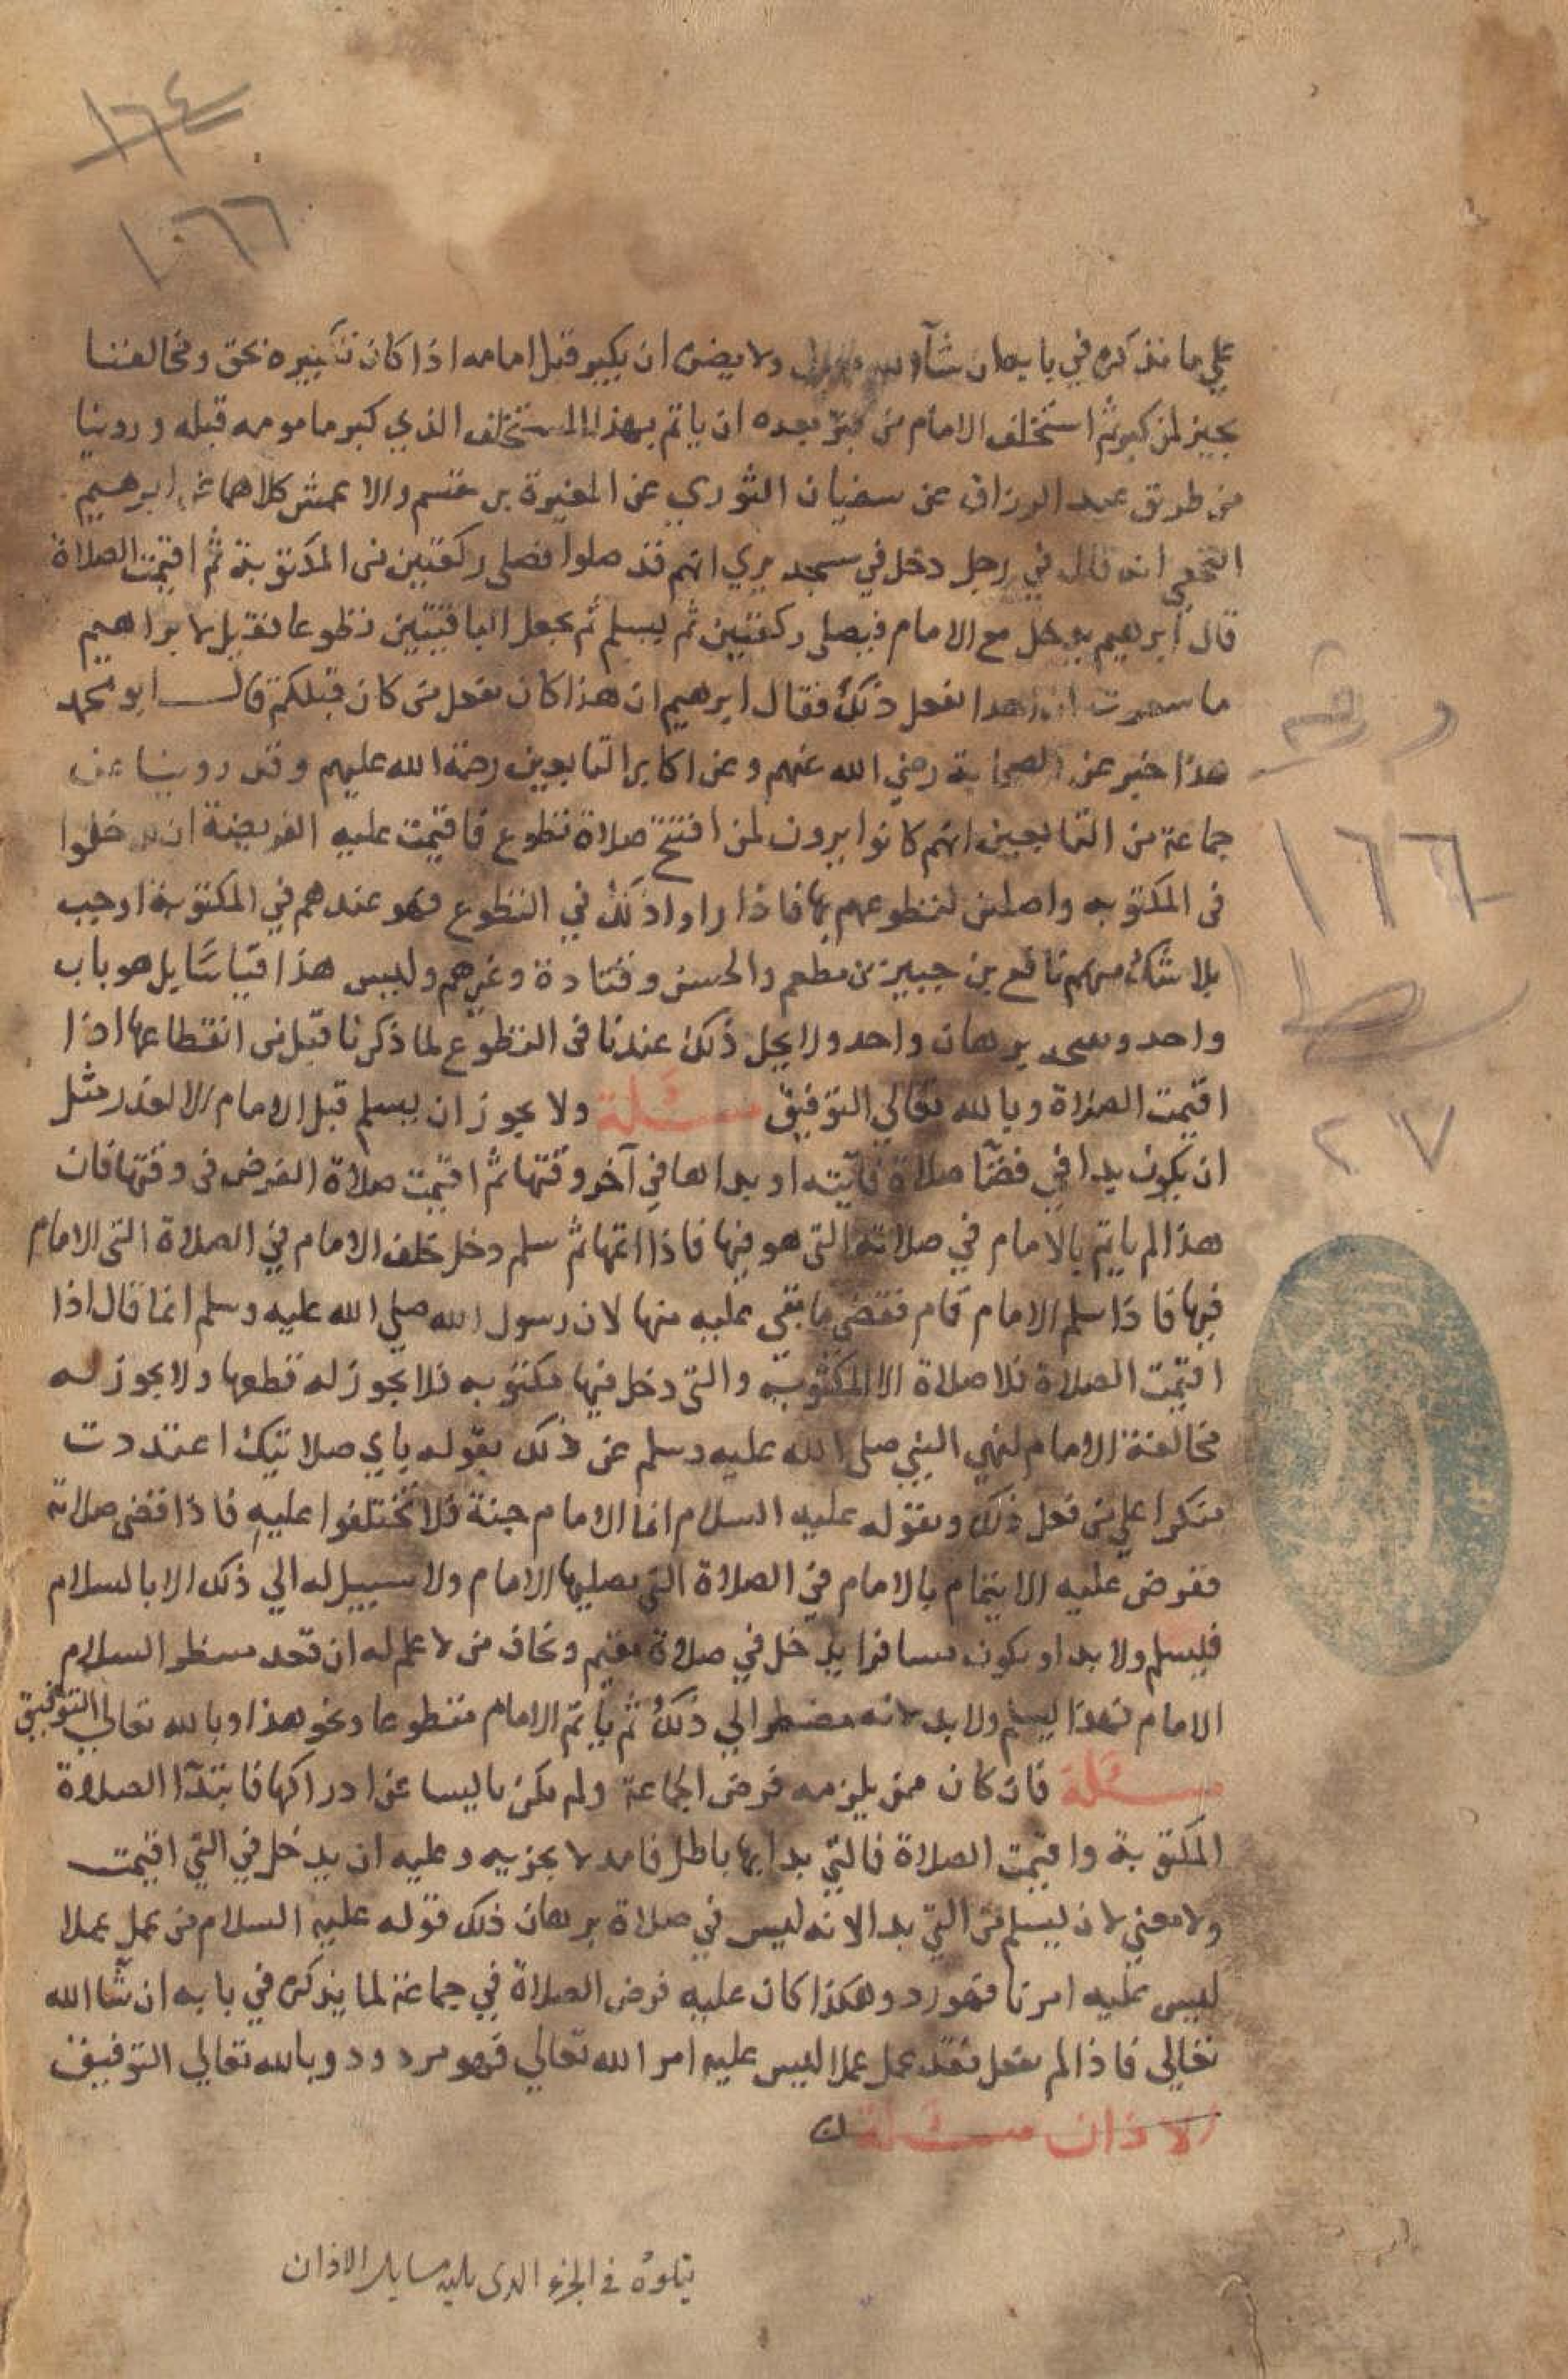 ١٦٤
١٠٦٦
علي ما نذكره في بابه ان شآ الله تعالى ولا يضره ان يكبر قبل امامه اذا كان تكبيره بحق ومخالفنا
يجيز لمن كبر ثم استخلف الامام من كبر بعده ان ياتم بهذا المستخلف الذي كبر مامومه قبله وروينا
من طريق عبد الرزاق عن سفيان الثوري عن المغيرة بن مقسم والاعمش كلاهما عن ابرهيم
النخعي انه قال في رجل دخل في مسجد يري انهم قد صلوا فصلي ركعتين من المكتوبة ثم اقيمت الصلاة
قال ابرهيم يدخل مع الامام فيصلي ركعتين ثم يسلم ثم يجعل الباقيتين تطوعا فقيل لابراهيم
ما شعرت ان احدا يفعل ذلك فقال ابرهيم ان هذا كان يفعل من كان قبلكم قال ابو محمد
هذا خبر عن الصحابة رضي الله عنهم وعن اكابر التابعين رحمة الله عليهم وقد روينا عن
جماعة من التابعين انهم كانوا يرون لمن افتتح صلاة تطوع فاقيمت عليه الفريضة ان يدخلوا
في المكتوبه واصلين لتطوعهم بها فاذا راوا ذلك في التطوع فهو عندهم في المكتوبة اوجب
بلا شك منهم نافع بن جبير بن مطعم والحسن وقتادة وغيرهم وليس هذا قياسًا بل هو باب
واحد برهان واحد ولا يحل ذلك عندنا في التطوع لما ذكرنا قبل من انقطاعها اذا
اقيمت الصلاة وبالله تعالي التوفيق مسئلة ولا يجوز ان يسلم قبل الامام الا لعذر مثل
ان يكون بدا في قضآ صلاة فايته او بداها في آخر وقتها ثم اقيمت صلاة الفرض في وقتها فان
هذا لم ياتم بالامام في صلاته التي هو فيها فاذا اتمها ثم سلم دخل خلف الامام في الصلاة التي الامام
فيها فاذا سلم الامام قام فقضي ما بقي عليه منها لان رسول الله صلي الله عليه وسلم انما قال اذا
اقيمت الصلاة فلا صلاة الا المكتوبة والتي دخل فيها مكتوبه فلا يجوز له قطعها ولا يجوز له
مخالفة الامام لنهي النبي صلى الله عليه وسلم عن ذلك بقوله باي صلاتيك اعتددت
منكرا علي من فعل ذلك وبقوله عليه السلام انما الامام جنة فلا تختلفوا عليه فاذا قضى صلاته
ففرض عليه الايتمام بالامام في الصلاة التي يصليها الامام ولا سبيل له الي ذلك الا بالسلام
فليسلم ولا بد او يكون مسافرا يدخل في صلاة مقيم ويخاف من لا علم له ان قعد ينتظر السلام
الامام فهذا ليسلم ولا بد لانه مضطر الي ذلك ثم ياتم الامام متطوعا ونحو هذا وبالله تعالي التوفيق
مسئلة فان كان ممن يلزمه فرض الجماعة ولم يكن يايسا عن ادراكها فابتدآ الصلاة
المكتوبة واقيمت الصلاة فالتي بدا بها باطل فاسد لا يجزيه وعليه ان يدخل في التي اقيمت
ولا معني لان يسلم من التي بدا لانه ليس في صلاة برهان ذلك قوله عليه السلام من عمل عملا
ليس عليه امرنا فهو رد وهكذا كان عليه فرض الصلاة في جماعة لما يذكره في بابه ان شآ الله
تعالي فاذا لم يفعل فقد عمل عملا ليس عليه امر الله تعالي فهو مردود وبالله تعالي التوفيق
الاذان مسئلة
يتلوه في الجزء الذى يليه مسايل الاذان
١٦٦
٢٧